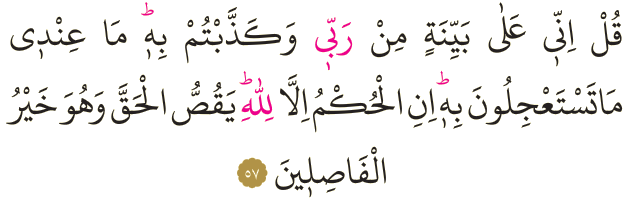 قُلْ اِنّ۪ي عَلٰى بَيِّنَةٍ مِنْ رَبّ۪ي وَكَذَّبْتُمْ بِه۪ۜ مَا عِنْد۪ي
مَا تَسْتَعْجِلُونَ بِه۪ۜ اِنِ الْحُكْمُ اِلَّا لِلّٰهِۜ يَقُصُّ الْحَقَّ وَهُوَ خَيْرُ
الْفَاصِل۪ينَ ﴿٥٧﴾